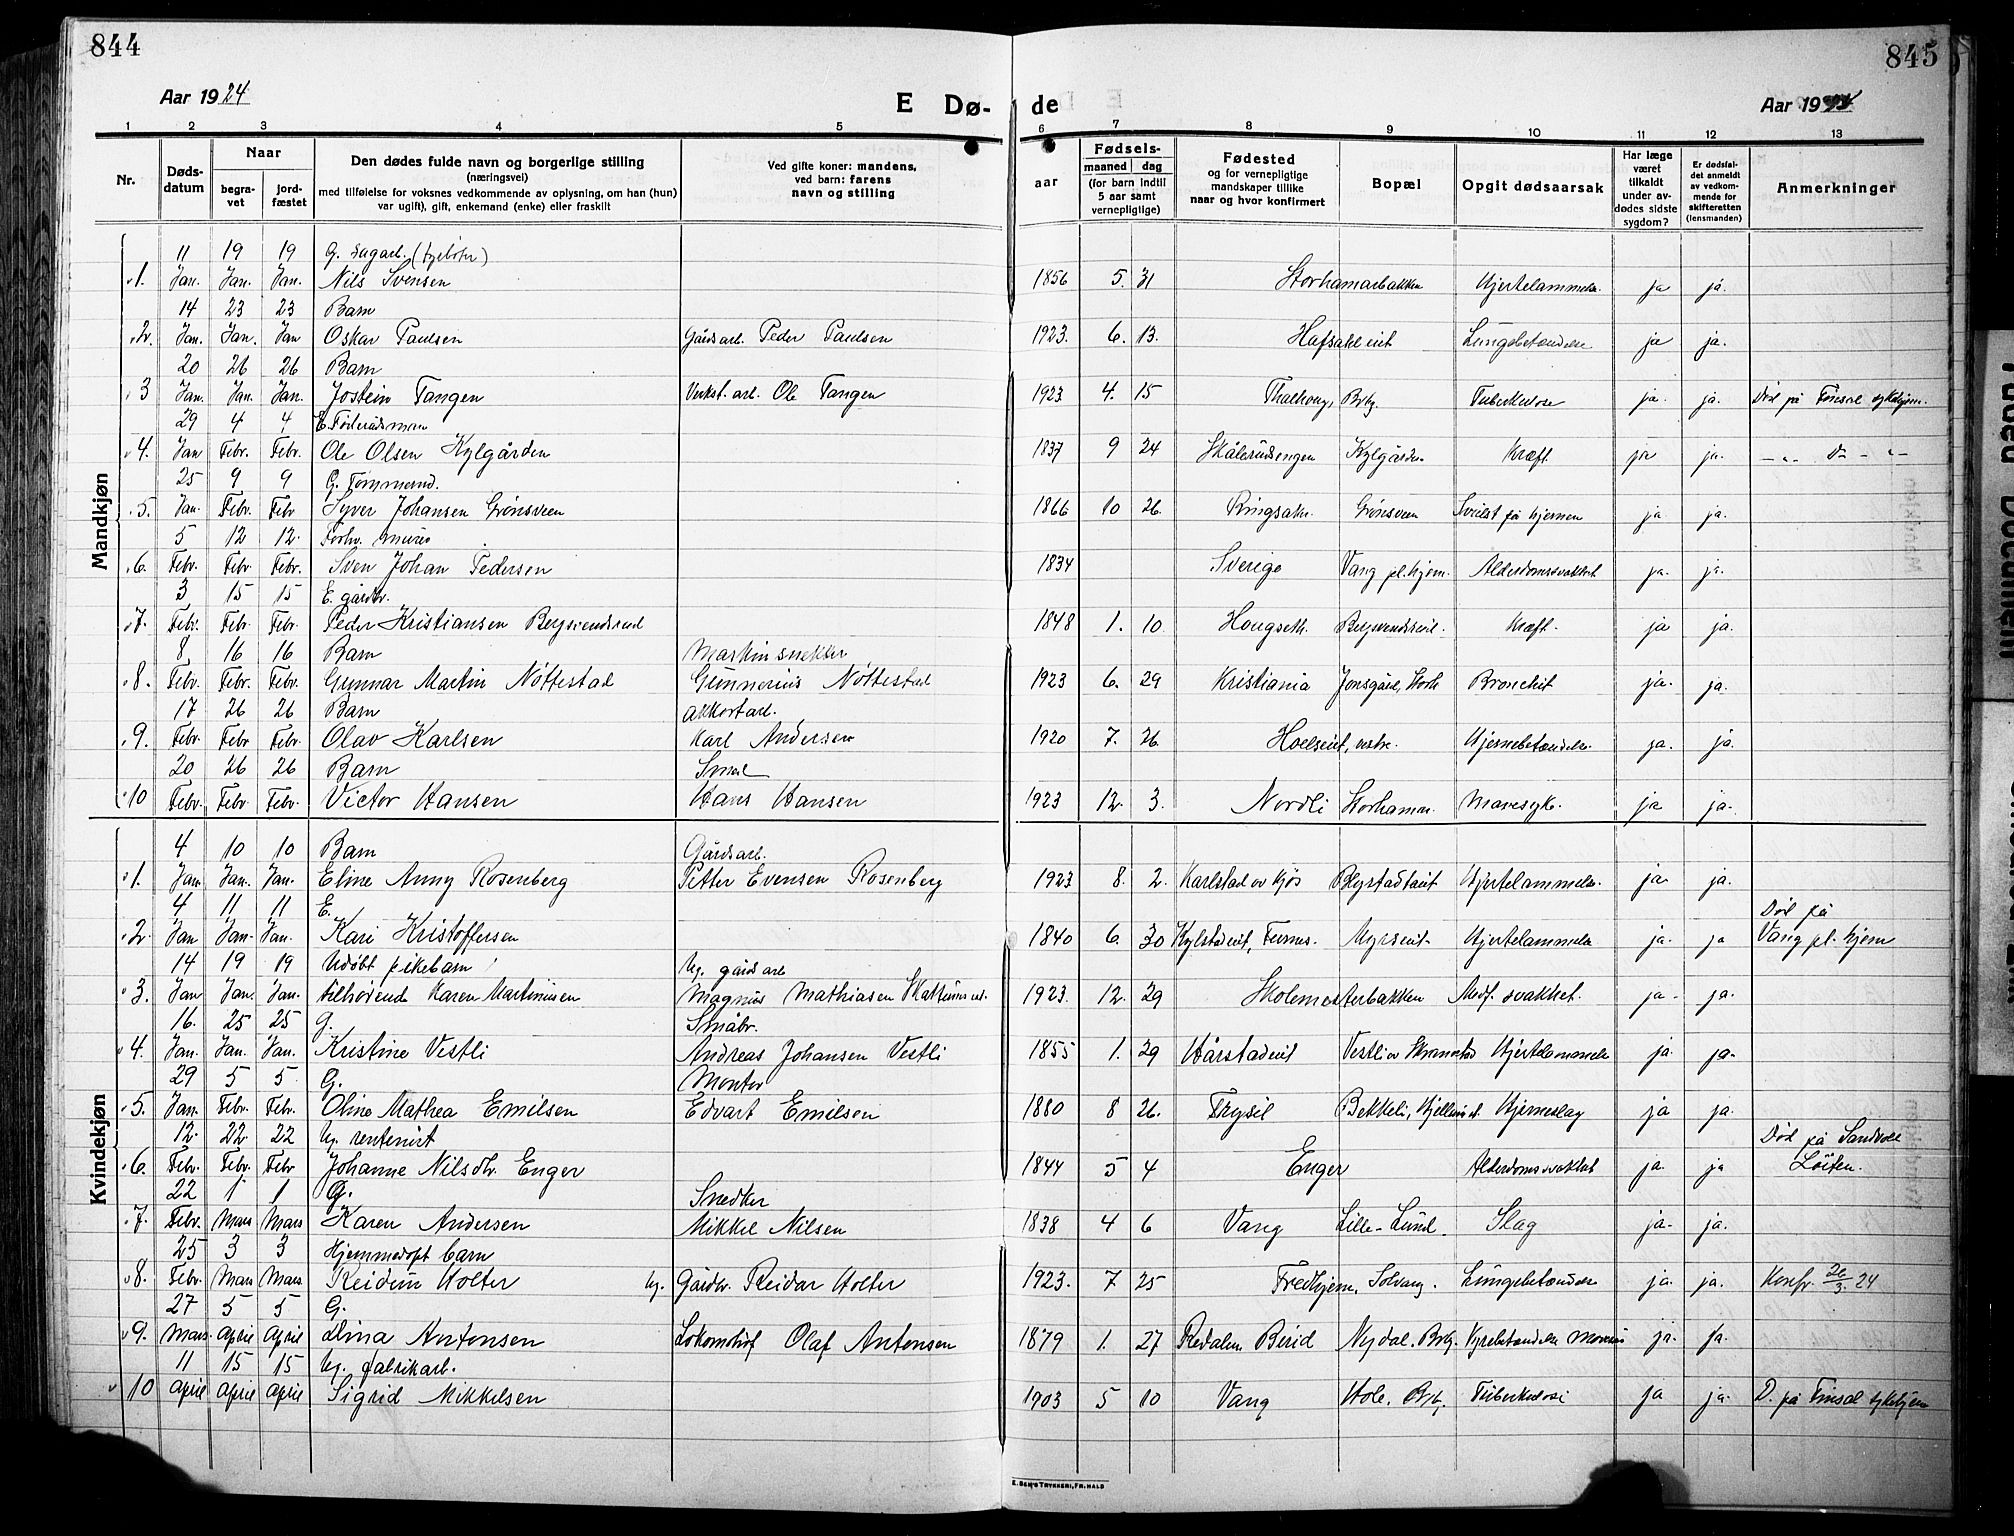 844
845
Aar 1924
E Dø- de
Aar 1924
1 2 3 4 5 6 7 8 9 10 11 12 13
Nr.
Døds-datum
Naar
begra-vet
jord-fæstet
Den dødes fulde navn og borgerlige stilling
(næringsvei)
med tilføielse for voksnes vedkommende av oplysning, om han (hun)
var ugift), gift, enkemand (enke) eller fraskilt
Ved gifte koner: mandens,
ved barn: farens
navn og stilling
Fødsels-
aar
maaned dag
(for barn indtil
5 aar samt
vernepligtige)
Fødested
og for vernepligtige
mandskaper tillike
naar og hvor konfirmert
Bopæl
Opgit dødsaarsak
Har læge
været
tilkaldt
under av-
dødes sidste
sygdom?
Er dødsfal-
det anmeldt
av vedkom-
mende for
skifteretten
(lensmanden)
Anmerkninger
Mandkjøn
11 19 19 G. sagarb.
1. Jan. Jan. Jan. Nils Svensen 1856 5. 31 Storhamarbakken Hjertelammelse ja ja.
14 23 23 Barn
2. Jan. Jan. Jan Oskar Paulsen Gårdsarb. Peder Paulsen 1923. 6. 13. Hafsaleiet Lungebetændelse ja ja.
20 26 26 Barn
3 Jan. Jan. Jan. Jostein Tangen Verkst. arb. Ole Tangen 1923 4. 15 Brbg. Tuberkulose ja. ja. Død på Finsal sykehjem.
29 4 4 E. Føderådsmann
4. Jan Febr. Febr. Ole Olsen Kylgården 1837 9 24 Skålerudsengen Kylgården Kræft ja ja. -"- D- -"-
25 9 9 G. Tømmermd.
5. Jan. Febr. Febr Syver Johansen Grønsveen 1866 10 26. Ringsaker Grønsveen Svulst på hjernen ja ja.
5 12 12. Forhv. murer
6. Febr. Febr. Febr. Sven Johan Pedersen 1834 Sverige Vang pl. hjem. Alderdomssvakhet ja. ja.
3 15 15 E. gårdbr.
7. Febr. Febr. Febr. Peder Kristiansen Bergsvendseiet 1848 1. 10. Haugseth. Bergsvendseiet. Kræft. ja ja.
8 16 16 Barn Maskinsnekker
8. Febr. Febr. Febr. Gunnar Martin Nøttestad Gunnerius Nøttestad 1923 6. 29 Kristiania Jonsgård, Storh. Bronchit ja. ja.
17 26 26 Barn akkortarb.
9. Febr. Febr Febr. Olav Karlsen Karl Andersen 1920 7. 26. Hoelseiet, vestre. Hjernebetændelse. ja. ja.
20 26 26 Barn Smed
10 Febr. Febr. Febr. Victor Hansen Hans Hansen 1923 12. 3. Nordli Storhamar. Mavesyk. ja ja.
Kvindekjøn
4 10 10 Barn Gårdsarb.
1. Jan Jan. Jan. Eline Anny Rosenberg Petter Evensen Rosenberg 1923 8. 2. Karlstad ov Kjøs Blystadeiet Hjertelammelse. ja. ja.
4 11 11 E. Død på
2. Jan Jan. Jan. Kari Kristoffersen 1840 6. 30 Kylstadeiet, Furnes. Myrseiet. Hjertelammelse ja. ja Vang pl. hjem
14 19 19 Udøbt pikebarn Ug. gårdsarb
3. Jan Jan. Jan. tilhørende Karen Martinusen Magnus Mathiasen 1923. 12. 29 Skolemesterbakken Medf. svakhet. ja. ja.
16. 25 25 G. Småbr.
4. Jan. Jan. Jan. Kristine Vestli Andreas Johansen Vestli 1855 1. 29 Hårstadeiet Vestli Hjertelammelse ja. ja.
29 5 5. G. Montør
5. Jan. Febr. Febr. Oline Mathea Emilsen Edvart Emilsen 1880 8 26. Trysil Bekkeli, Hjellumeiet. Hjerneslag ja ja.
12. 22. 22 Ug. rentenist Død på
6. Febr. Febr. Febr Johanne Nilsdtr. Enger 1844 5 4 Enger Alderdomssvakhet ja. ja Løiten.
22 1 1 G. Snedker
7. Febr. Mars Mars Karen Andersen Mikkel Nilsen 1838 4 6 Vang Lille-Lund. Slag ja. ja.
25 3 3 Hjemmedøpt barn
8. Febr. Mars Mars. Reidun Holter Ug. Gårdbr. Reidar Holter 1923. 7 25 Fredhjem, Solvang. Lungebetændelse ja. ja. Konfr 26/3. 24
27 5 5 G.
9. Mars. April April Dina Antonsen Lokomotivf Olaf Antonsen 1879 1. 27 Redalen Birid Nydal. Brbg. Nyrebetændelse ja. ja.
11 15 15 Ug. fabrikarb.
10 April April April Sigrid Mikkelsen 1903 5 10 Vang Hole. Brbg. Tuberkulose ja ja. D. på Finsal sykehjem
E. SEM'S TRYKKERI, FR. HALD